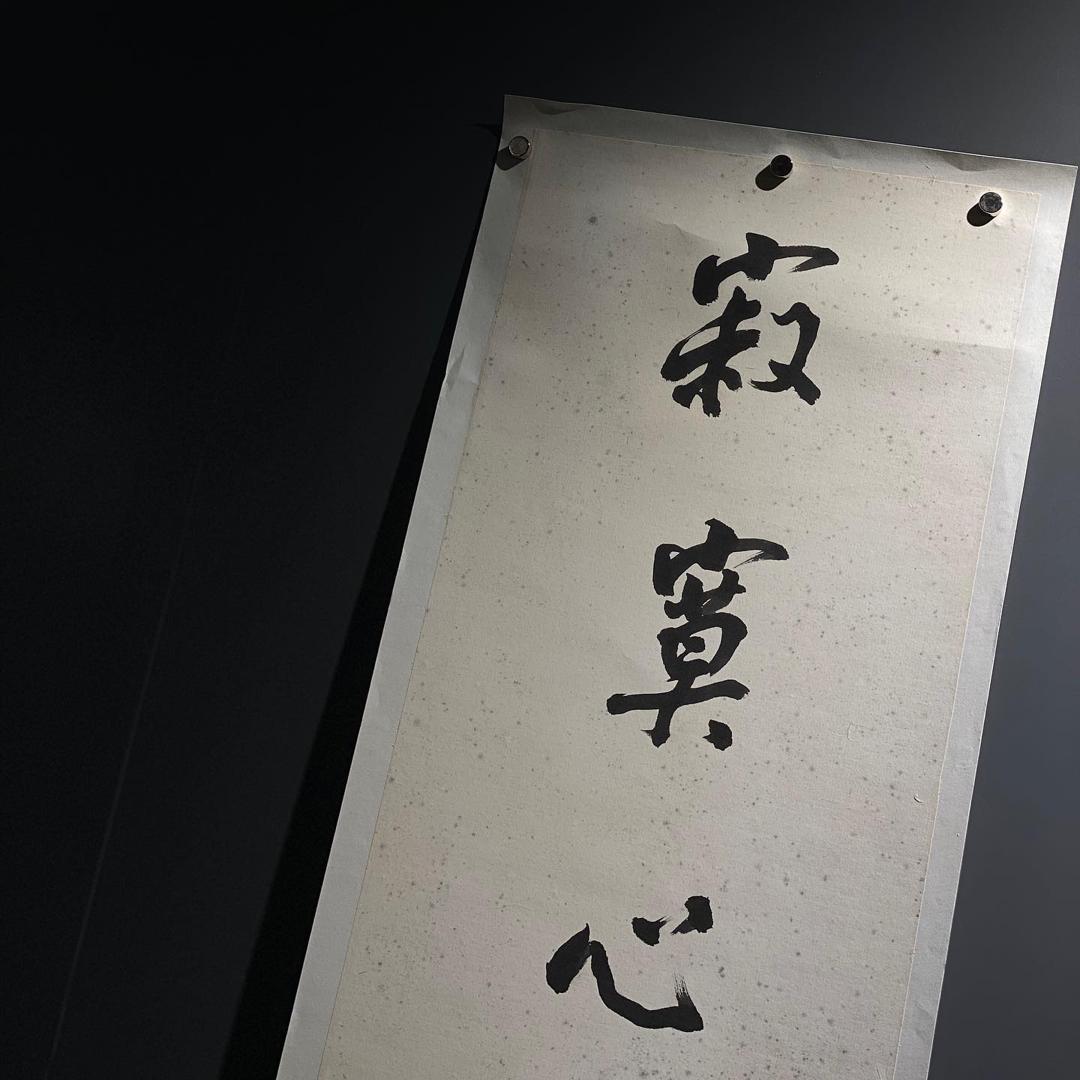 寂寞心